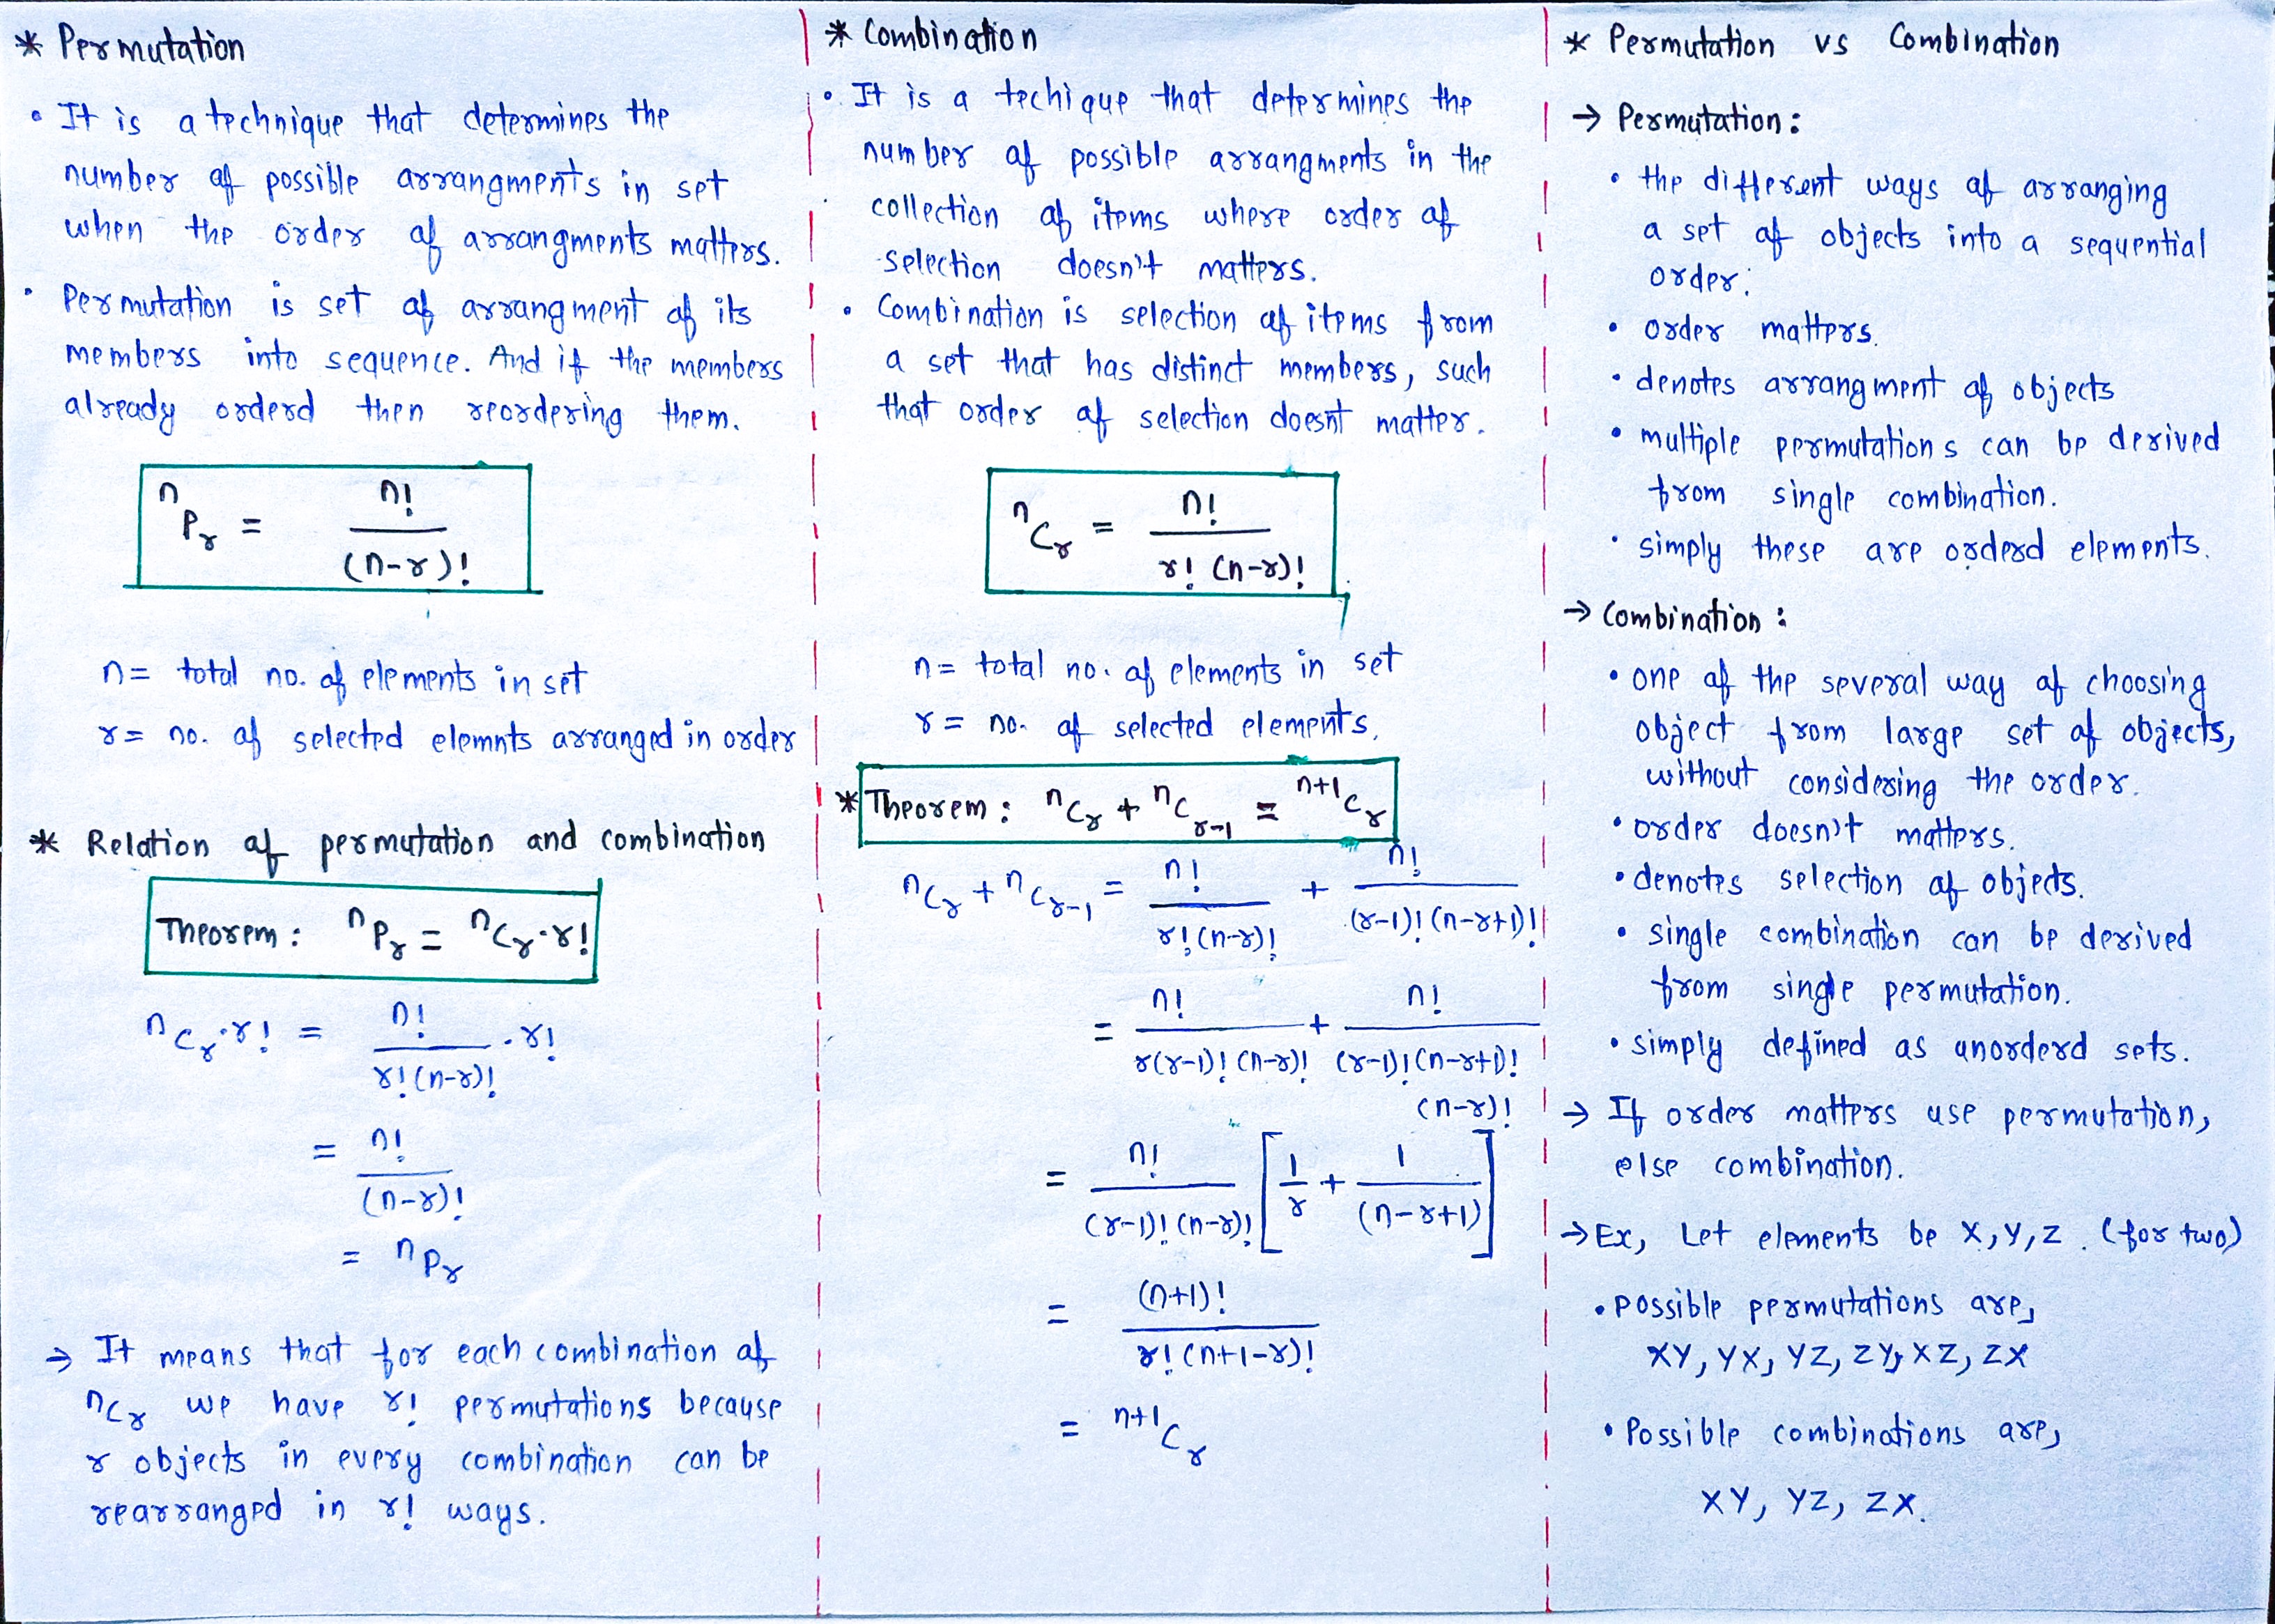 * Permutation
• It is a technique that determines the
number of possible arrangments in set
when the order of arrangments matters.
• Permutation is set of arrangment of its
members into sequence. And if the members
already orderd then reordering them.
ⁿPᵣ = n! / (n-r)!
n = total no. of elements in set
r = no. of selected elemnts arranged in order
* Relation of permutation and combination
Theorem : ⁿPᵣ = ⁿCᵣ · r!
ⁿCᵣ · r! = n! / r! (n-r)! . r!
= n! / (n-r)!
= ⁿPᵣ
→ It means that for each combination of
ⁿCᵣ we have r! permutations because
r objects in every combination can be
rearranged in r! ways.
* Combination
• It is a techique that determines the
number of possible arrangments in the
collection of items where order of
selection doesn't matters.
• Combination is selection of items from
a set that has distinct members, such
that order of selection doesnt matter.
ⁿCᵣ = n! / r! (n-r)!
n = total no. of elements in set
r = no. of selected elements.
* Theorem : ⁿCᵣ + ⁿCᵣ₋₁ = ⁿ⁺¹Cᵣ
ⁿCᵣ + ⁿCᵣ₋₁ = n! / r! (n-r)! + n! / (r-1)! (n-r+1)!
= n! / r(r-1)! (n-r)! + n! / (r-1)! (n-r+1)!
(n-r)!
= n! / (r-1)! (n-r)! [ 1/r + 1/(n-r+1) ]
= (n+1)! / r! (n+1-r)!
= ⁿ⁺¹Cᵣ
* Permutation vs Combination
→ Permutation :
• the different ways of arranging
a set of objects into a sequential
order.
• order matters.
• denotes arrangment of objects
• multiple permutations can be derived
from single combination.
• simply these are orderd elements.
→ Combination :
• one of the several way of choosing
object from large set of objects,
without considering the order.
• order doesn't matters.
• denotes selection of objects.
• single combination can be derived
from single permutation.
• simply defined as unorderd sets.
→ If order matters use permutation,
else combination.
→ Ex, Let elements be X, Y, Z. (for two)
• possible permutations are,
XY, YX, YZ, ZY, XZ, ZX
• Possible combinations are,
XY, YZ, ZX.